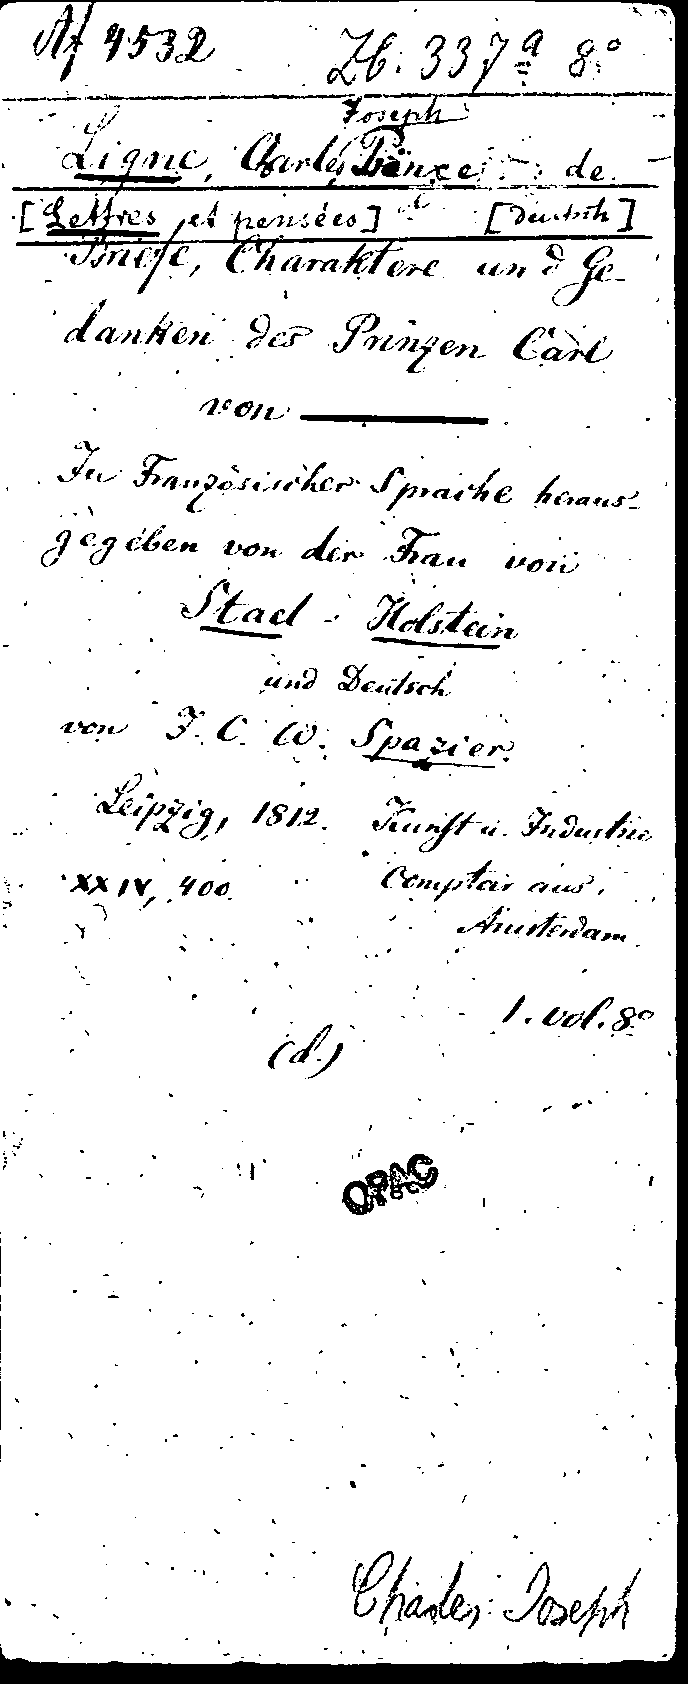 Af 4532 Zb. 337a 8°
Joseph
Ligne, Charles Prince de
[Lettres et pensées] [Deutsch]
Briefe, Charaktere und Ge-
danken des Prinzen Carl
von ———
In Französischer Sprache heraus-
gegeben von der Frau von
Stael-Holstein
und Deutsch
von F. C. W. Spazier.
Leipzig, 1812. Kunst u. Industrie
XXIV, 400. Comptoir aus
Amsterdam.
1. vol. 8°
(d.)
OPAC
Charles Joseph